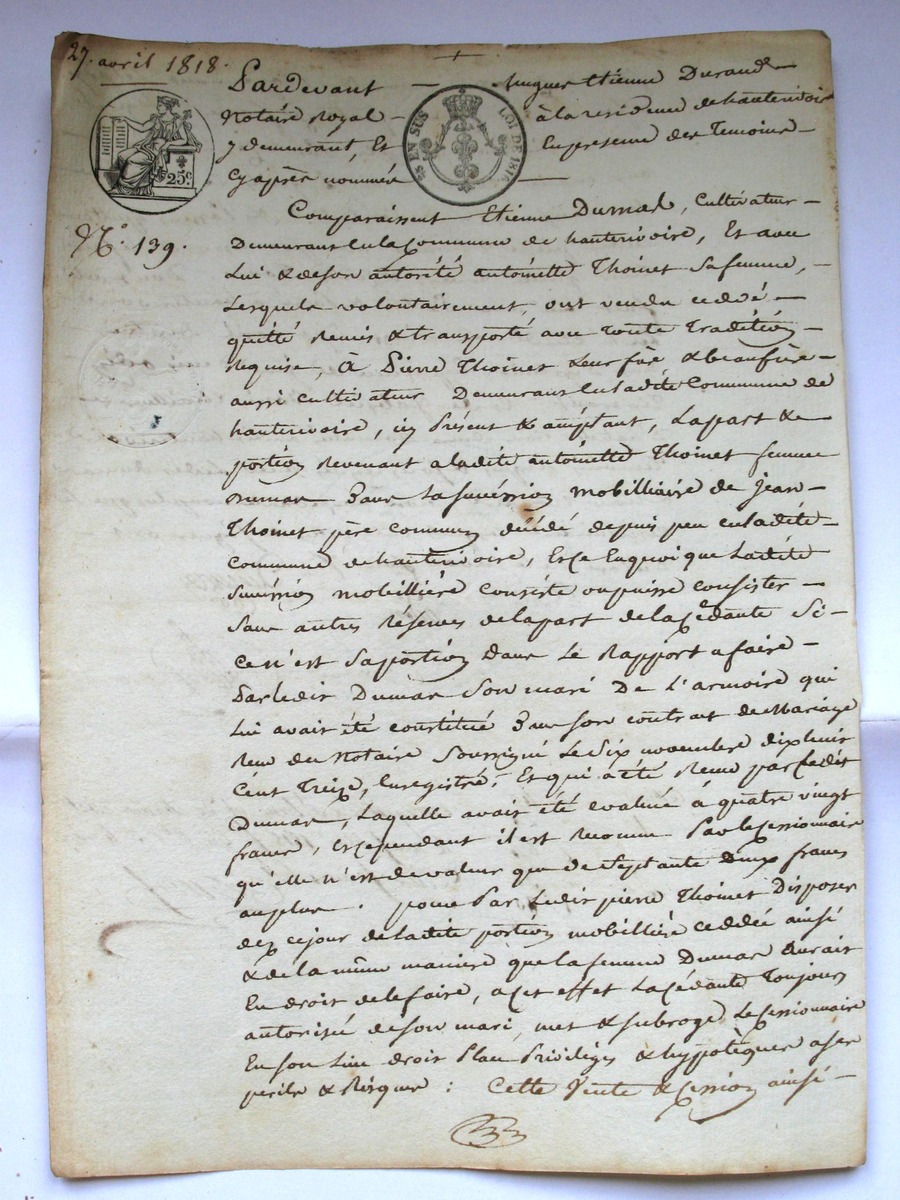 27. avril 1818.
Pardevant — hugues Etienne Durand —
Notaire Royal — à la residence de hauterivoire
y demeurant, Et En presence des Temoins —
Cyaprès nommés —
25 EN SUS LOI DE 1816
25c.
N.o 139.
Comparaissent Etienne Dumas, Cultivateur —
Demeurant En la Commune de hauterivoire, Et avec
Lui & de son autorité antoinette Thoinet Sa femme, —
Lesquels volontairement, ont vendu ceddé —
quitté Remis & transporté avec toute Tradition —
Requise, à Pierre Thoinet Leur frère & beaufrère —
aussi cultivateur Demeurant En ladite Commune de
hauterivoire, icy Présent & acceptant, La part &
portion Revenant a ladite antoinette Thoinet femme
Dumas Dans La succession mobilliaire de Jean —
Thoinet père commun décédé depuis peu en ladite —
Commune de hauterivoire, Et ce En quoi que Ladite
Succession mobillière consiste ou puisse consister —
Sans autres Réserves de la part de la Cédante Si —
Ce n'est Sa portion Dans Le Rapport a faire —
Par Ledit Dumas Son mari De L'armoire qui
Lui avait été constitué Dans son contrat de Mariage
Reçu du Notaire Soussigné Le Six novembre dix huit
Cent Treize, Enregistré, Et qui a été Remis par Ledit
Dumas, Laquelle avait été évalué à quatre vingt
francs, Et cependant il est Reconnu Par le Cessionnaire
qu'elle n'est de valeur que de Septante Deux francs
au plus. pour Par Ledit pierre Thoinet Disposer
dez ce jour de ladite portion mobilliere ceddée ainsi
& de la même maniere que la femme Dumas Aurait
En droit de le faire, a cet effet La Cédante Toujours
autorisée de son mari, met & subroge Le Cessionnaire
En son Lieu droit Place Privilèges & hypotèques a ses
perils & Risques : Cette Vente & Cession ainsi —